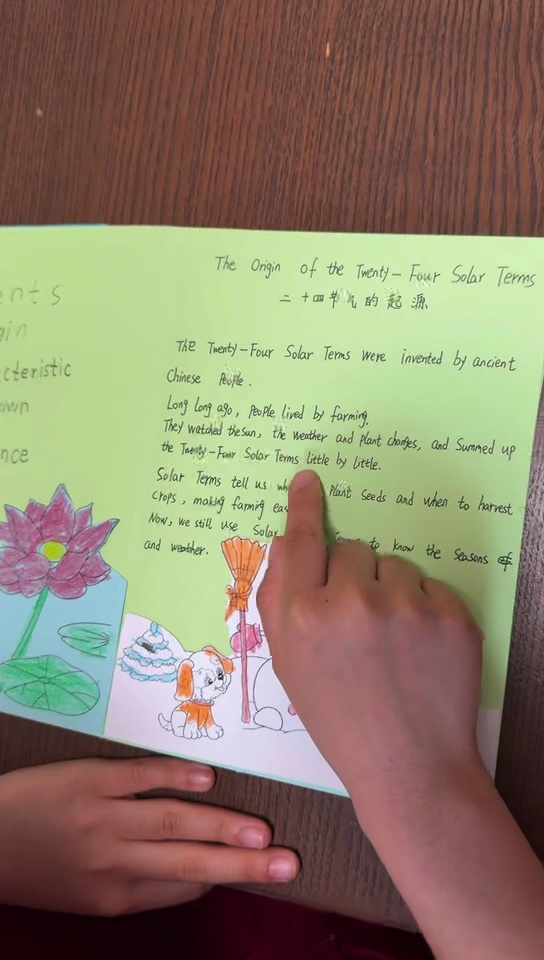 The Origin of the Twenty-Four Solar Terms
二十四节气的起源
The Twenty-Four Solar Terms were invented by ancient
Chinese People.
Long long ago, People lived by farming.
They watched the sun, the weather and plant changes, and Summed up
the Twenty-Four Solar Terms little by little.
Solar Terms tell us Plant Seeds and when to harvest
Crops, making farming
Now, we still use Solar to know the Seasons
and weather.
ents
gin
cteristic
own
nce